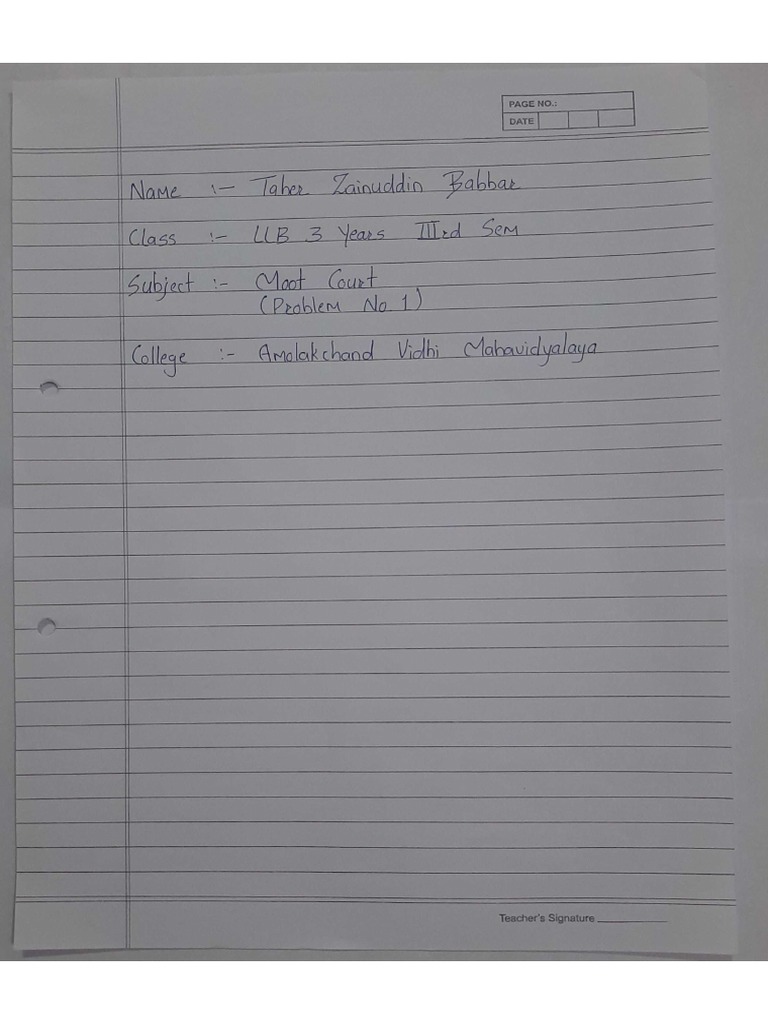 PAGE NO.:
DATE
Name :- Taher Zainuddin Babbar
Class :- LLB 3 Years IIIrd Sem
Subject :- Moot Court
(Problem No 1)
College :- Amolakchand Vidhi Mahavidyalaya
Teacher's Signature